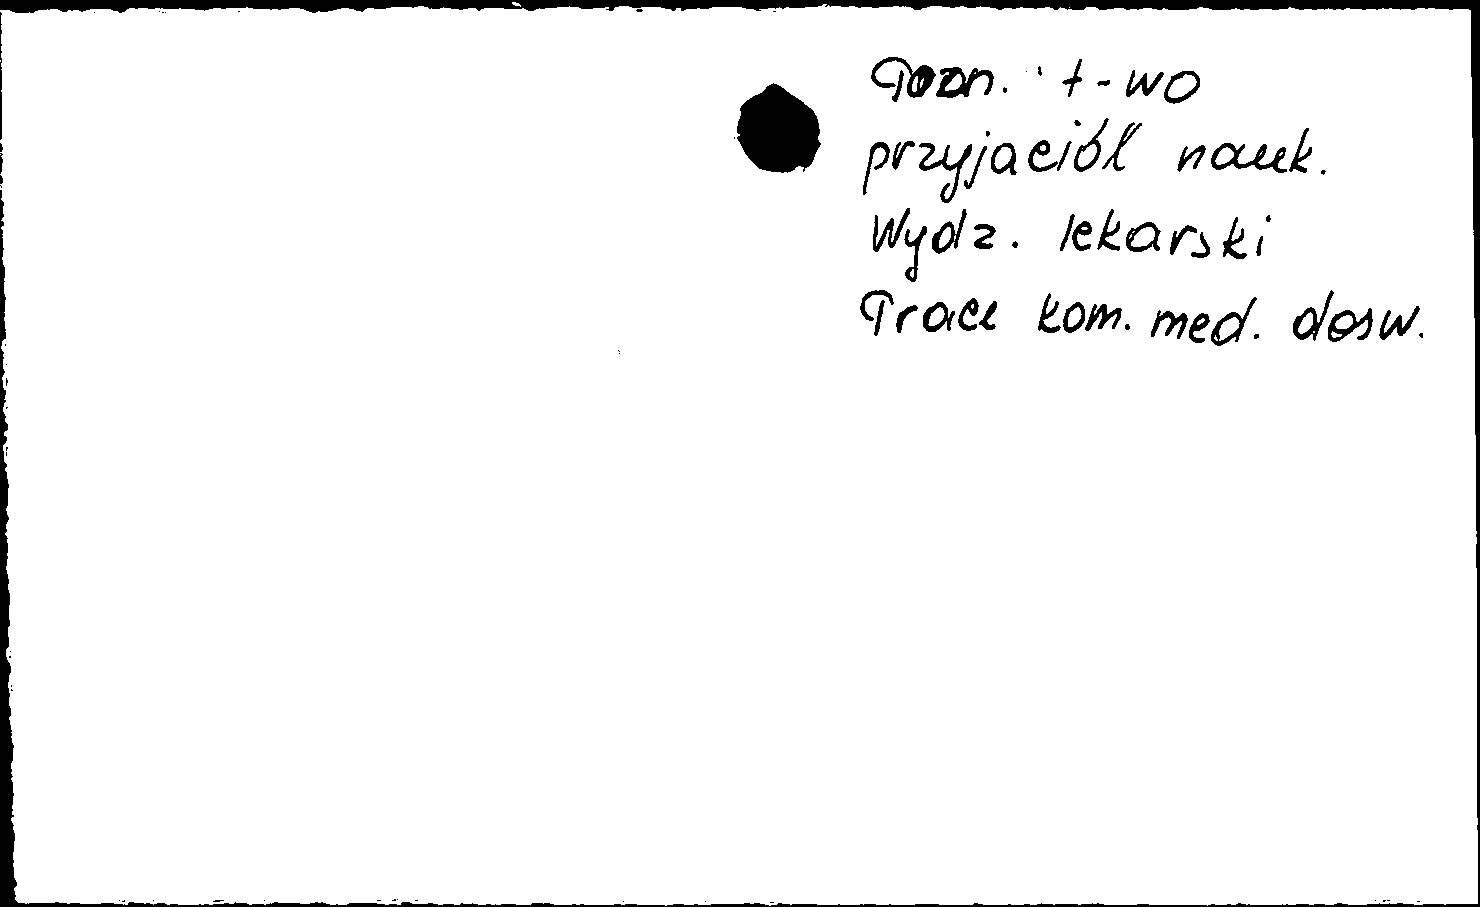 Pozn. t-wo
przyjaciół nauk.
Wydz. lekarski
Prace kom. med. dosw.